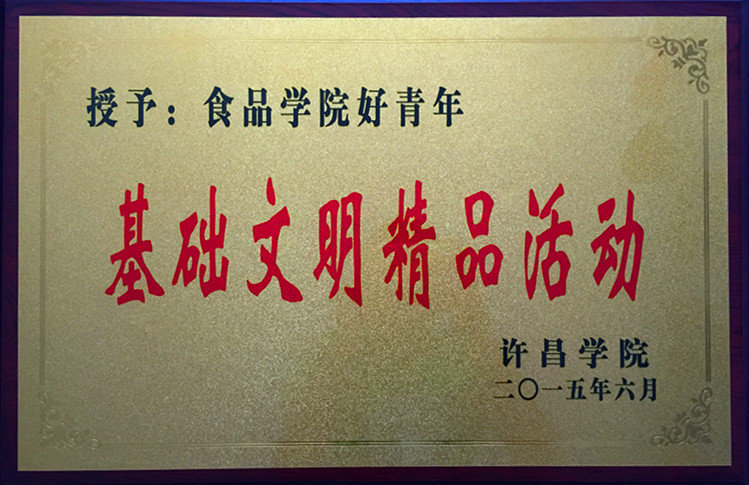 授予：食品学院好青年
基础文明精品活动
许昌学院
二〇一五年六月